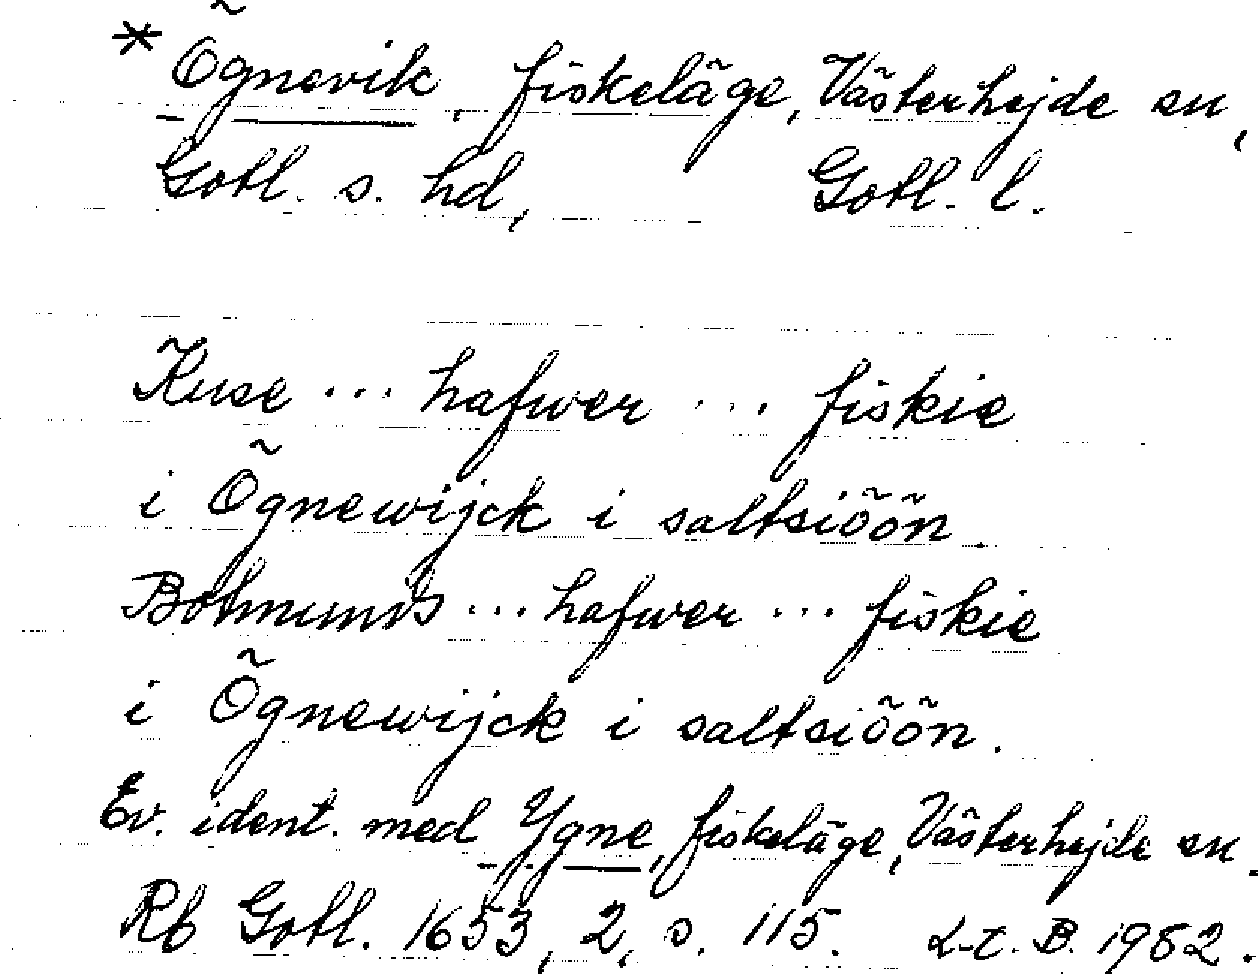 * Õgnevik, fiskeläge, Västerhejde sn,
Gotl. s. hd, Gotl. l.
Kuse ... hafwer ... fiskie
i Õgnewijck i saltsiõõn.
Botmunds ... hafwer ... fiskie
i Õgnewijck i saltsiõõn.
Ev. ident. med Ygne, fiskeläge, Västerhejde sn.
Rb Gotl. 1653, 2, s. 115. L-E. B. 1982.